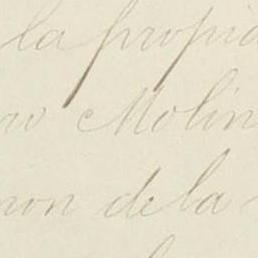 la propie
ro Molin
non de la